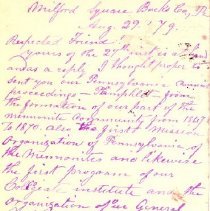 Milford Square Bucks Co, Pa
Aug. 29 '79.
Respected Friend!
Yours of the 27 inst is at hand
and as a reply I thought proper to
sent you the Pennsylvania
proceedings Pamphlet from
the formation of our part of the
mennonite Community from 1847
to 1870. also the first Mission
Organization of Pennsylvania of
the Mennonites and likewise
the first program of our
College institute and the
Organization of our General